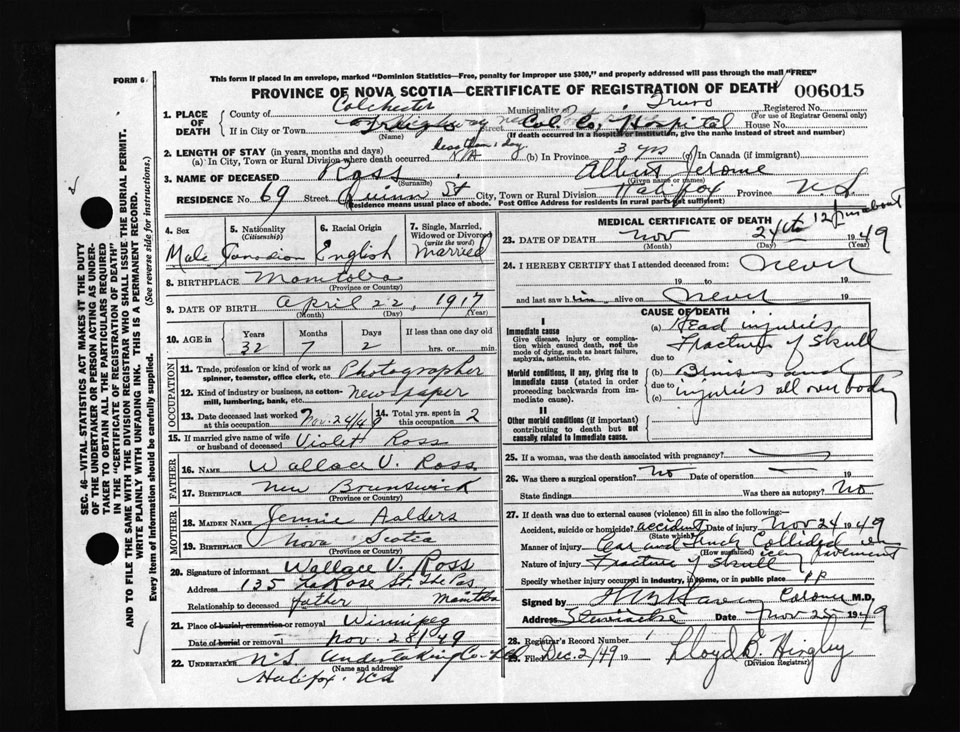 FORM 6
This form if placed in an envelope, marked "Dominion Statistics—Free, penalty for improper use $300," and properly addressed will pass through the mail "FREE"
PROVINCE OF NOVA SCOTIA—CERTIFICATE OF REGISTRATION OF DEATH 006015
1. PLACE OF DEATH
County of Colchester Municipality of Truro Registered No.
(For use of Registrar General only)
If in City or Town Highway Street Col. Co. Hospital House No.
(Name) (If death occurred in a hospital or institution, give the name instead of street and number)
2. LENGTH OF STAY (in years, months and days) less than 1 day
(a) In City, Town or Rural Division where death occurred N/A (b) In Province 3 yrs (c) In Canada (if immigrant)
3. NAME OF DECEASED Ross Albert Jerome
(Surname) (Given name or names)
RESIDENCE No. 69 Street Quinn St City, Town or Rural Division Halifax Province N.S.
(Residence means usual place of abode. Post Office Address for residents in rural parts not sufficient)
4. Sex Male
5. Nationality (Citizenship) Canadian
6. Racial Origin English
7. Single, Married, Widowed or Divorced (write the word) Married
8. BIRTHPLACE Manitoba
(Province or Country)
9. DATE OF BIRTH April 22, 1917
(Month) (Day) (Year)
10. AGE in Years Months Days If less than one day
32 7 2 hrs. or min.
OCCUPATION
11. Trade, profession or kind of work as spinner, teamster, office clerk, etc. Photographer
12. Kind of industry or business, as cotton-mill, lumbering, bank, etc. Newspaper
13. Date deceased last worked at this occupation Nov. 24/49
14. Total yrs. spent in this occupation 2
15. If married give name of wife or husband of deceased Violet Ross
FATHER
16. NAME Wallace V. Ross
17. BIRTHPLACE New Brunswick
(Province or Country)
MOTHER
18. MAIDEN NAME Jennie Aalders
19. BIRTHPLACE Nova Scotia
(Province or Country)
20. Signature of informant Wallace V. Ross
Address 135 LaRose St, The Pas
Manitoba
Relationship to deceased father
21. Place of burial, cremation or removal Winnipeg
Date of burial or removal Nov. 28/49
22. UNDERTAKER N.S. Undertaking Co. Ltd
(Name and address)
Halifax N.S.
MEDICAL CERTIFICATE OF DEATH
23. DATE OF DEATH Nov 24th 12 1949
(Month) (Day) (Year)
24. I HEREBY CERTIFY that I attended deceased from: Never
19 to 19
and last saw him alive on Never 19
CAUSE OF DEATH
I
Immediate cause
Give disease, injury or complication which caused death, not the mode of dying, such as heart failure, asphyxia, asthenia, etc.
(a) Head injuries
Fracture of Skull
due to
Morbid conditions, if any, giving rise to immediate cause (stated in order proceeding backwards from immediate cause).
(b) Bruises and
due to
(c) injuries all over body
II
Other morbid conditions (if important) contributing to death but not causally related to immediate cause.
25. If a woman, was the death associated with pregnancy?
26. Was there a surgical operation? No Date of operation — 19
State findings Was there an autopsy? No
27. If death was due to external causes (violence) fill in also the following:
Accident, suicide or homicide? accident Date of injury Nov 24 1949
(State which)
Manner of injury Car and Truck Collided on
(How sustained) icey pavement
Nature of injury Fracture of Skull
Specify whether injury occurred in industry, in home, or in public place PP
Signed by Coroner M.D.
Address Stewiacke Date Nov 25 1949
28. Registrar's Record Number 1
29. Filed Dec. 2/49 19 Lloyd B. Hingley
(Division Registrar)
SEC. 46—VITAL STATISTICS ACT MAKES IT THE DUTY
OF THE UNDERTAKER OR PERSON ACTING AS UNDERTAKER TO OBTAIN ALL THE PARTICULARS REQUIRED
IN THE "CERTIFICATE OF REGISTRATION OF DEATH"
AND TO FILE THE SAME WITH THE DIVISION REGISTRAR WHO SHALL ISSUE THE BURIAL PERMIT.
WRITE PLAINLY WITH UNFADING INK. THIS IS A PERMANENT RECORD.
Every item of information should be carefully supplied. (See reverse side for instructions.)